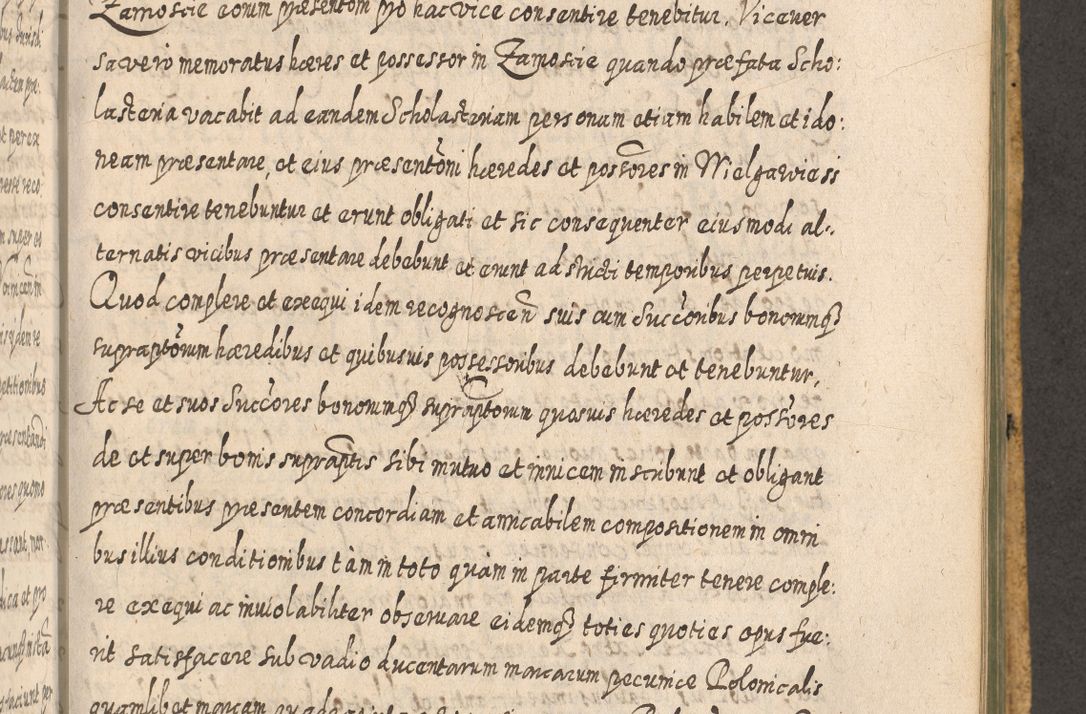 Zamoscie eorum præsentom pro hac vice consentire tenebitur. Vicever
sa vero memoratus hæres et possessor in Zamoscie quando præfata Scho:
lasteria vacabit ad eandem Scholasteriam personam etiam habilem et ido:
neam præsentare, et eius præsentōni hæredes et possōres in Wielgawiess
consentire tenebuntur et erunt obligati et sic consequenter eiusmodi al-
ternatis vicibus præsentare debebunt et erunt adstricti temporibus perpetuis.
Quod complere et exequi idem recognoscen̄ suis cum Succ̄oribus bonorumq3
supraptōrum hæredibus et quibusuis possessoribus debebunt et tenebuntur,
Ac se et suos Succ̄ores bonorumq3 suprāptorum quosuis hæredes et possōres
de et super bonis suprāptis sibi mutuo et inuicem inscribunt et obligant
præsentibus præsentem concordiam et amicabilem compositionem in omni
bus illius conditionibus tàm in toto quam in parte firmiter tenere comple:
re exequi ac inuiolabiliter obseruare eidemq3 toties quoties opus fue:
rit satisfacere sub vadio ducentarum marcarum pecuniæ Polonicalis